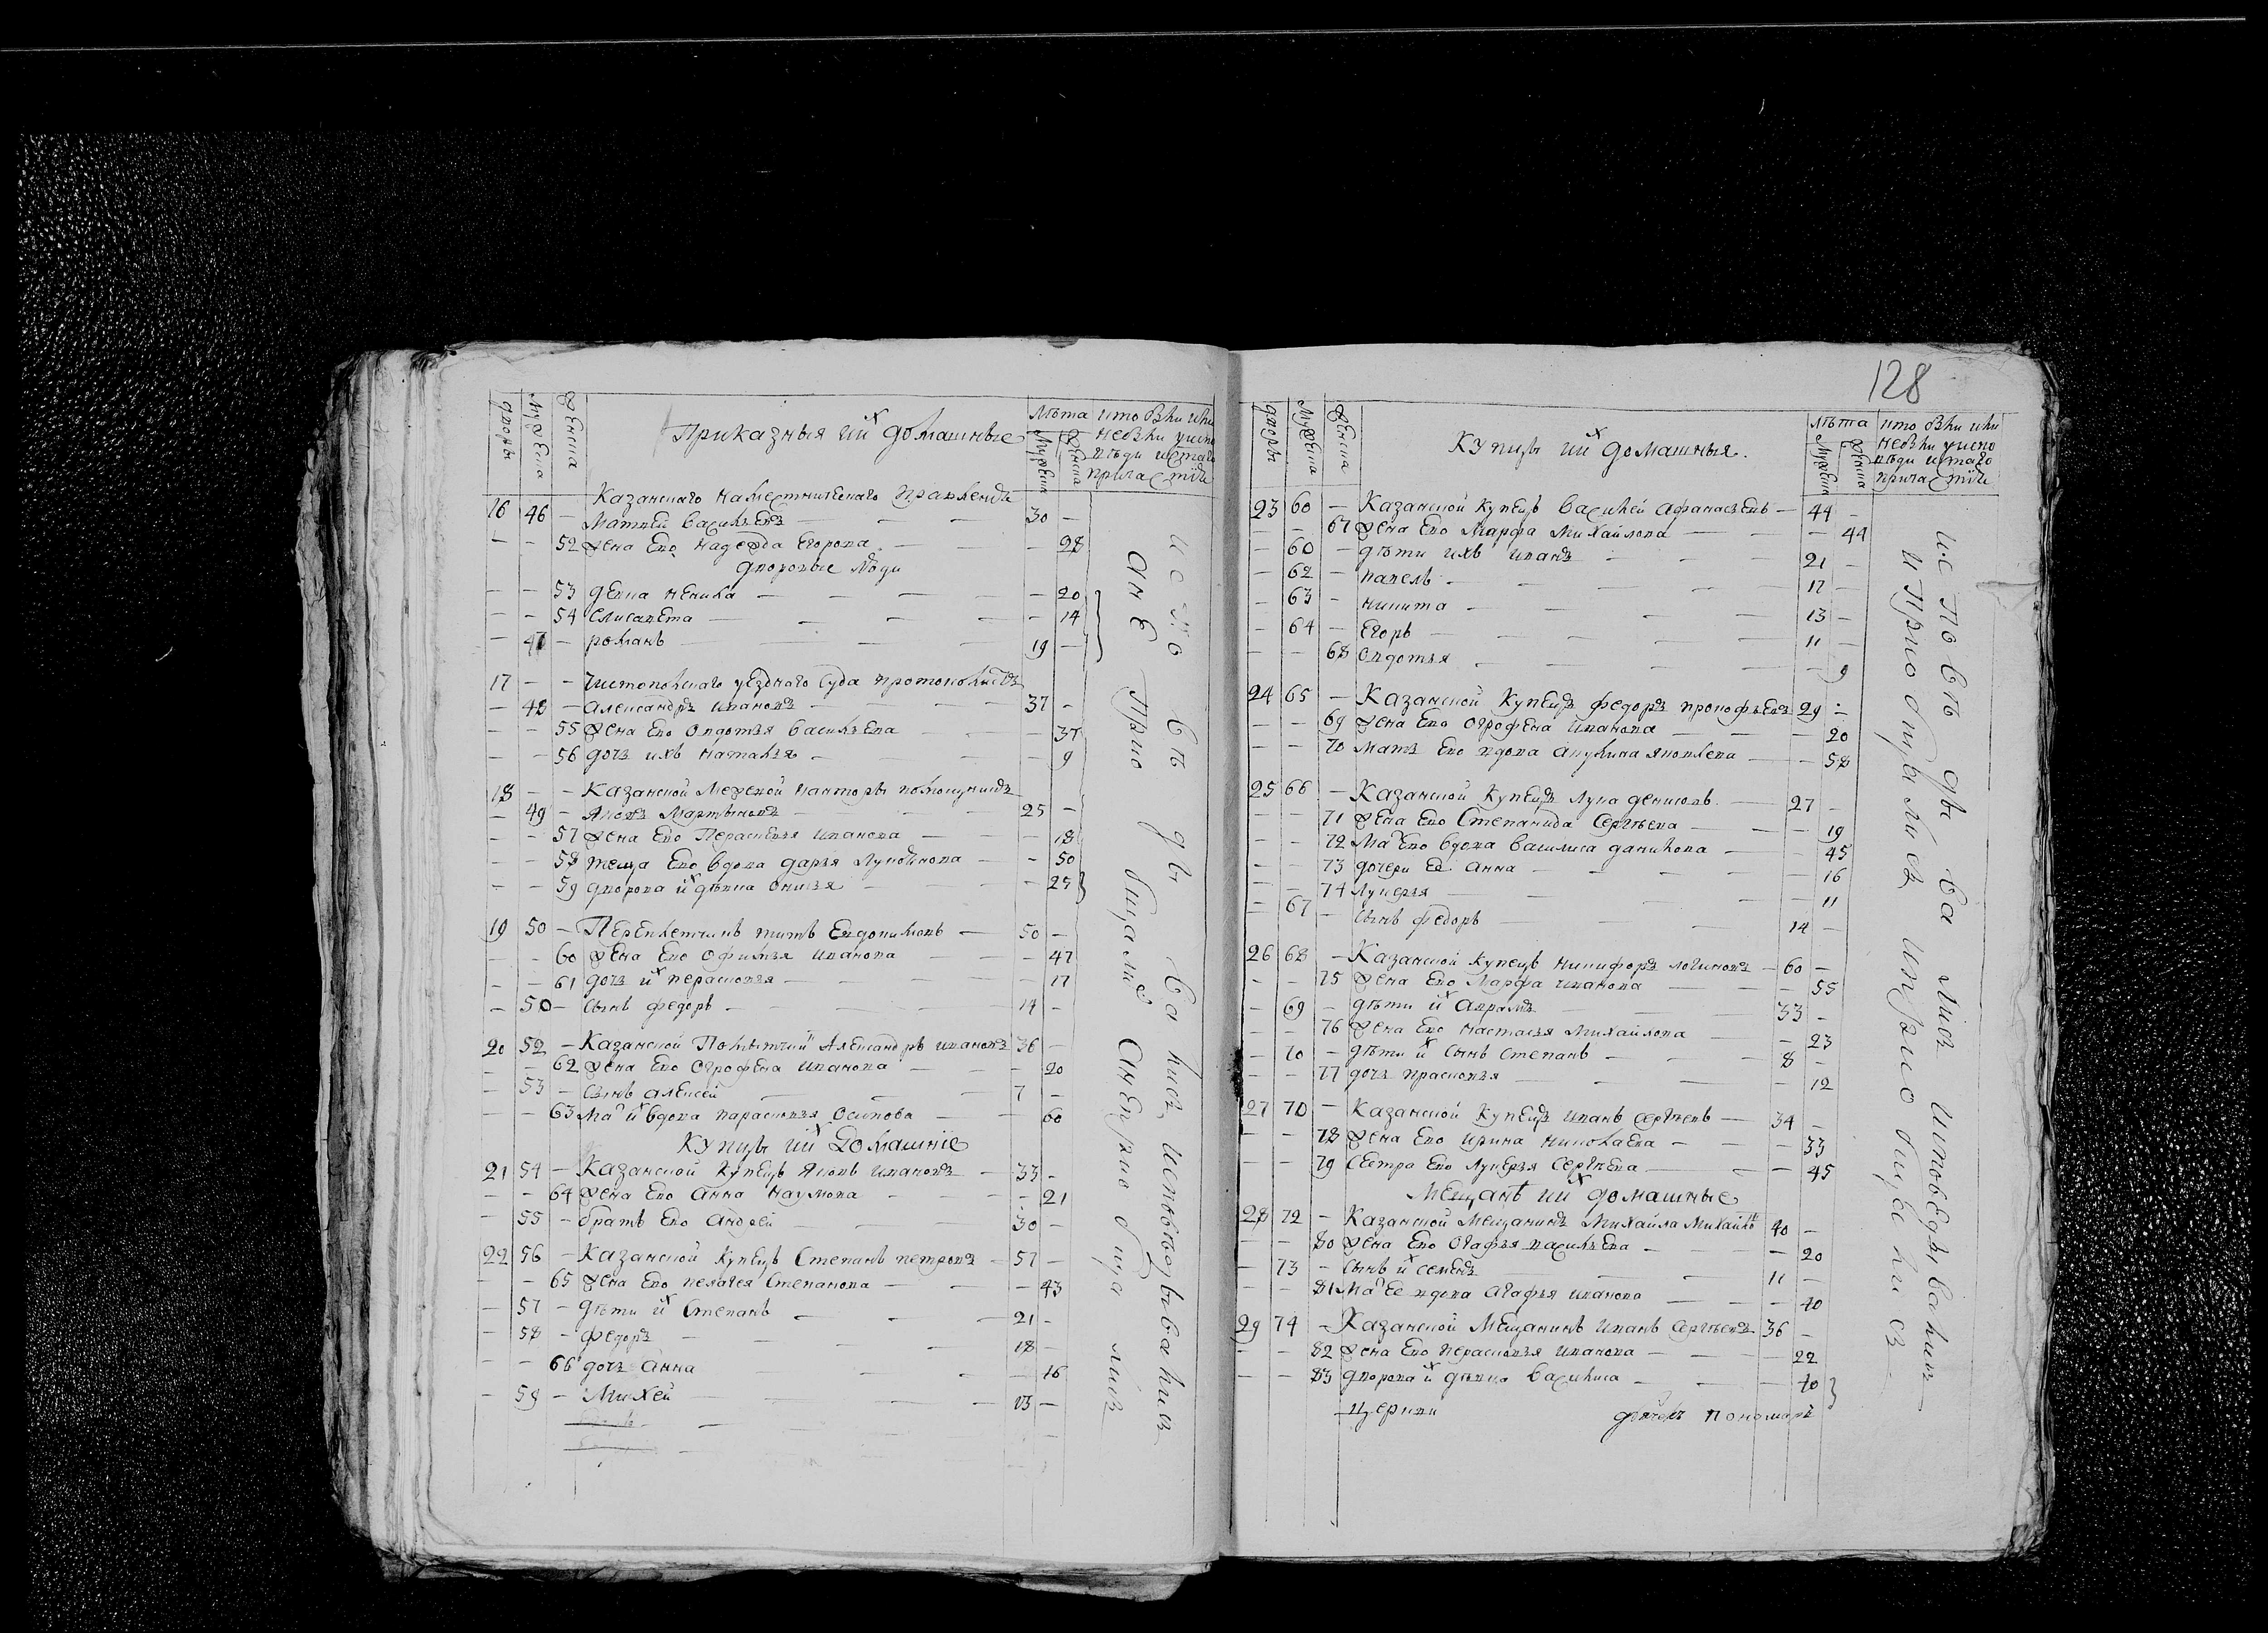 дворы
мужеска
женска
Приказныя и их домашные
лѣта
мужеска
женска
кто были или
небыли у испо
вѣди и стаго
причастiя
Казанскаго наместническаго правленiя
16 46 – Матвей Васильевъ – 30 –
– – 52 жена ево Надежда Егорова – – 28
дворовые люди
– – 53 девка Ненила – – 20
– – 54 Елисавета – – 14
– 47 – Романъ – 19 –
17 – – Чистопольскаго уезднаго суда протоколистъ
– 48 – Александръ Ивановъ – 37 –
– – 55 жена ево Овдотья Васильева – – 37
– – 56 дочь ихъ Наталья – – 9
18 – – Казанской межевой канторы помощникъ
– 49 – Яковъ Мартыновъ – 25 –
– – 57 жена ево Парасковья Иванова – – 18
– – 58 теща ево вдова Дарья – – 50
– – 59 дворова их дѣвка Онисья – – 25
19 50 – Переплетчикъ Титъ Евдокимовъ – 50 –
– – 60 жена ево Офимья Иванова – – 47
– – 61 дочь их Парасковья – – 17
– 50 – сынъ Федоръ – 14 –
20 52 – Казанской Повытчик Александръ Ивановъ 36 –
– – 62 жена ево Огрофена Иванова – – 20
– 53 – сынъ Алексей – 7 –
– – 63 Мат их вдова Парасковья Осипова – – 60
Купцы и их Домашнiе
21 54 – Казанской Купецъ Яковъ Ивановъ – 33 –
– – 64 жена ево Анна Наумова – – 21
– 55 – братъ ево Андрей – 30 –
22 56 – Казанской Купецъ Степанъ Петровъ – 57 –
– – 65 жена ево Пелагея Степанова – – 43
– 57 – дѣти их Степанъ – 21 –
– 58 – Федоръ – 18 –
– – 66 дочь Анна – – 16
– 59 – Михей – 13 –
исповѣдывались исповѣдывались
а не прiобщались а не прiобщались
128
дворы
мужеска
женска
Купцы и их домашныя.
лѣта
мужеска
женска
кто были или
небыли у испо
вѣди и стаго
причастiя
23 60 – Казанской Купецъ Василей Афанасьевъ – 44 –
– – 67 жена ево Марфа Михайлова – – 44
– 60 – дѣти ихъ Иванъ – 21 –
– 62 – Павелъ – 17 –
– 63 – Никита – 13 –
– 64 – Егоръ – 11 –
– – 68 Овдотья – – 9
24 65 – Казанской Купецъ Федоръ Прокофьевъ 29 –
– – 69 жена ево Огрофена Иванова – – 20
– – 70 мать ево вдова Акулина Яковлева – – 58
25 66 – Казанской Купецъ Лука Денисовъ – 27 –
– – 71 жена ево Степанида Сергѣева – – 19
– – 72 Мат ево вдова Василиса Данилова – – 45
– – 73 дочери ее Анна – – 16
– – 74 Лукерья – – 11
– 67 – сынъ Федоръ – 14 –
26 68 – Казанской Купецъ Никифоръ Логиновъ – 60 –
– – 75 жена ево Марфа Иванова – – 55
– 69 – дѣти их Аврамъ – 33 –
– – 76 жена ево Настасья Михайлова – – 23
– 70 – дѣти их сынъ Степанъ – 8 –
– – 77 дочь Прасковья – – 12
27 70 – Казанской Купецъ Иванъ Сергѣевъ – 34 –
– – 78 жена ево Ирина Николаева – – 33
– – 79 сестра ево Лукерья Сергѣева – – 45
Мещанѣ и их домашные
28 72 – Казанской Мещанинъ Михайла Михайлов 40 –
– – 80 жена ево Огафья Васильева – – 20
– 73 – сынъ их Семенъ – 11 –
– – 81 Мат ее вдова Агафья Иванова – – 70
29 74 – Казанской Мещанинъ Иванъ Сергѣевъ 36 –
– – 82 жена ево Парасковья Иванова – – 22
– – 83 дворова их дѣвка Василиса – – 40
Церкви дьячекъ пономарь
исповѣдывались исповедывались
и прiобщались и прiобщались